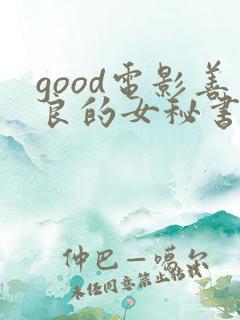 good电影善
良的女秘书
仲巴—噶尔
未经同意禁止转载